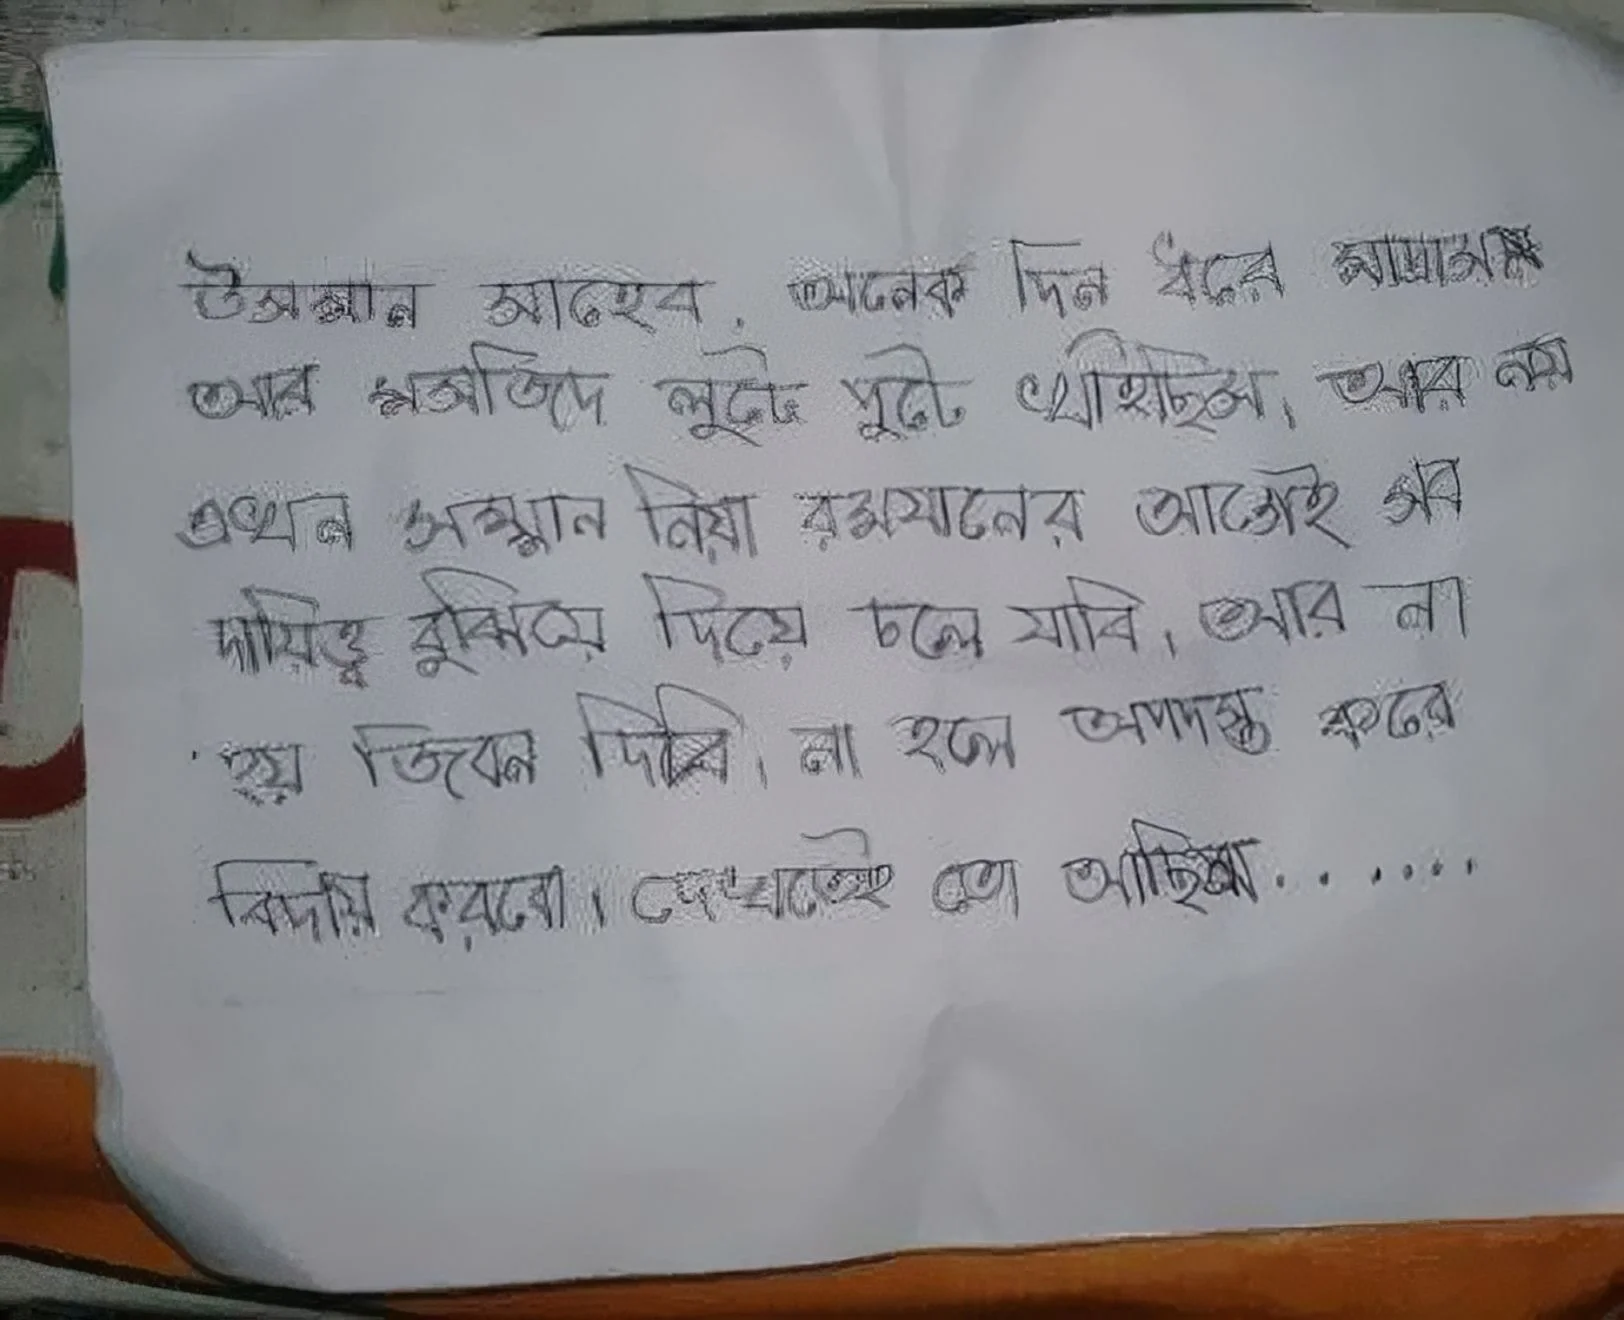 উসমান সাহেব, অনেক দিন ধরে মাদ্রাসা
আর মসজিদে লুটে পুটে খাইছিস, আর নয়
এখন সম্মান নিয়া রমযানের আগেই সব
দায়িত্ব বুঝিয়ে দিয়ে চলে যাবি, আর না
হয় জিবন দিবি, না হলে অপদস্ত করে
বিদায় করবো। দেখতেই তো আছিস........